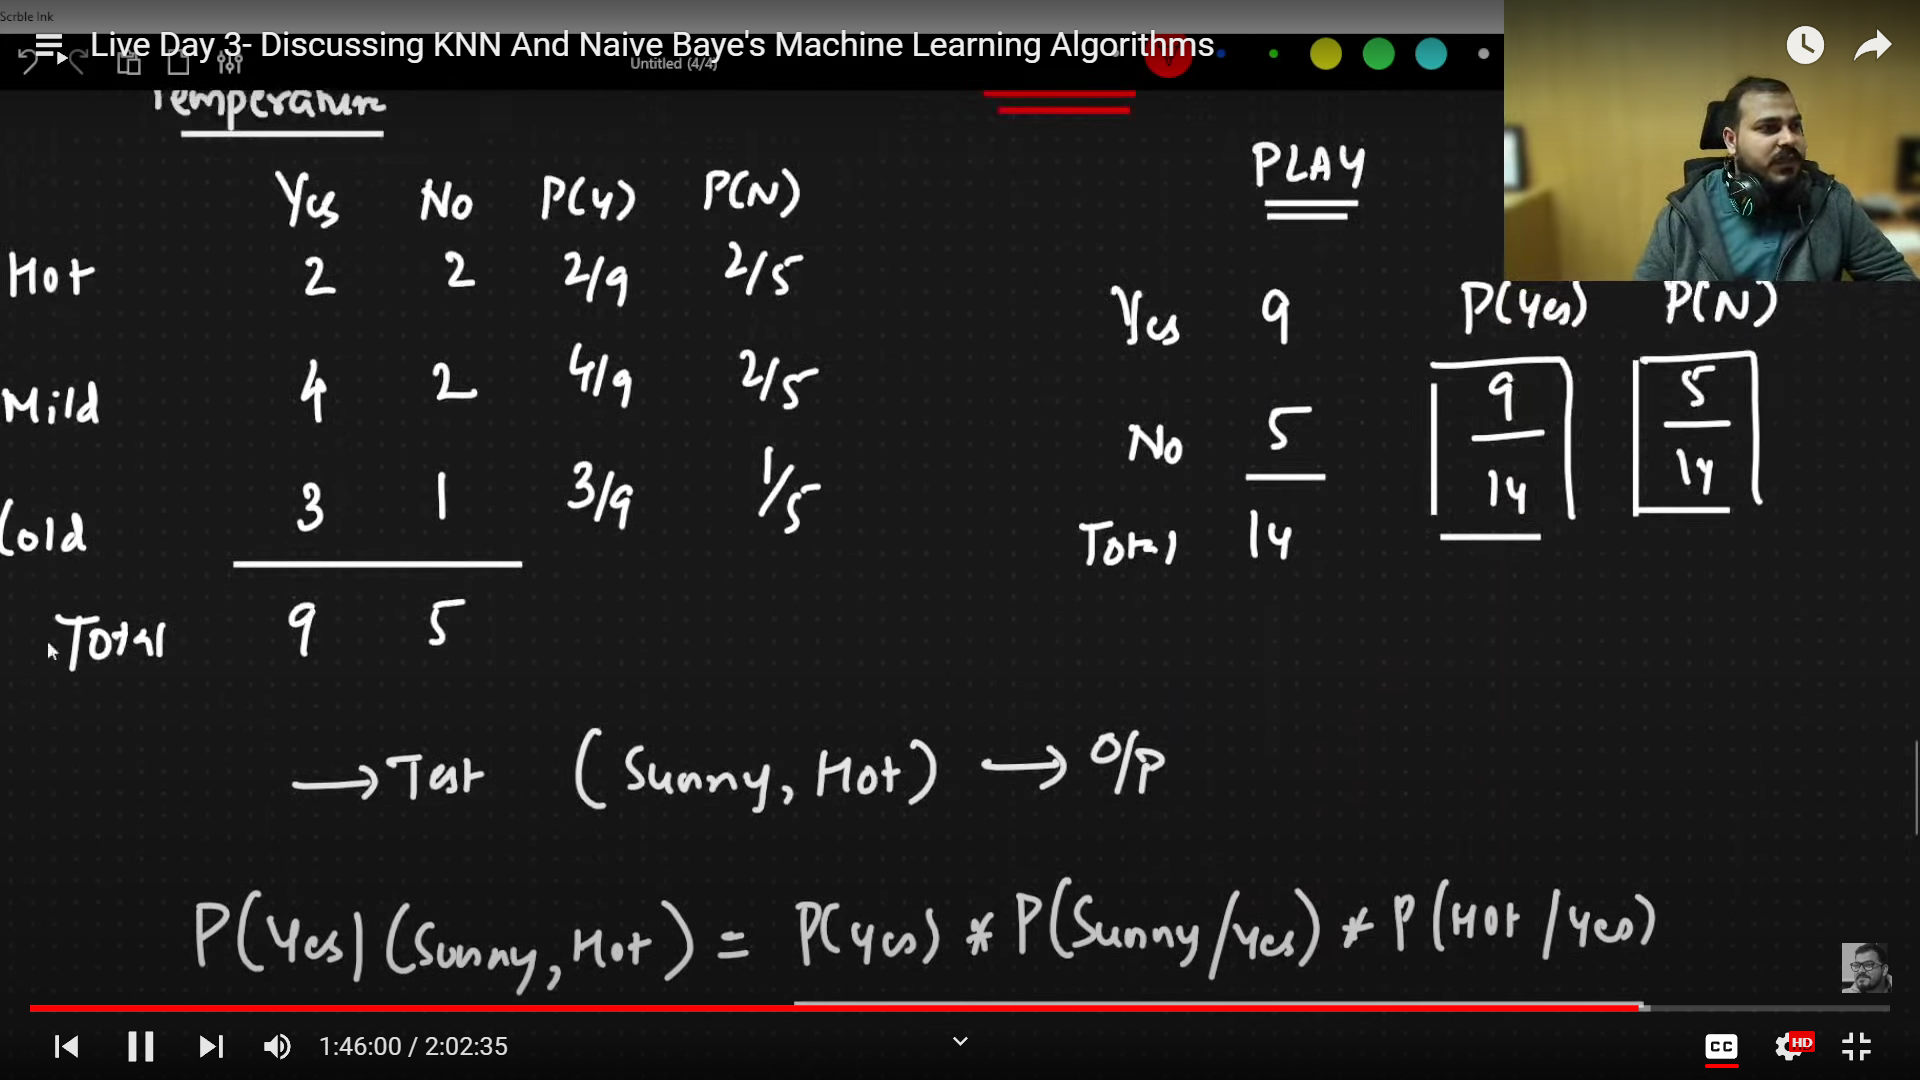 Scrble Ink
Live Day 3- Discussing KNN And Naive Baye's Machine Learning Algorithms
Untitled (4/4)
Temperature
Yes No P(Y) P(N)
Hot 2 2 2/9 2/5
Mild 4 2 4/9 2/5
Cold 3 1 3/9 1/5
Total 9 5
PLAY
P(Yes) P(N)
Yes 9
No 5
Total 14
9
14
5
14
→ Test (Sunny, Hot) → O/P
P(Yes|(Sunny, Hot) = P(Yes) * P(Sunny/Yes) * P(Hot/Yes)
1:46:00 / 2:02:35
CC
HD